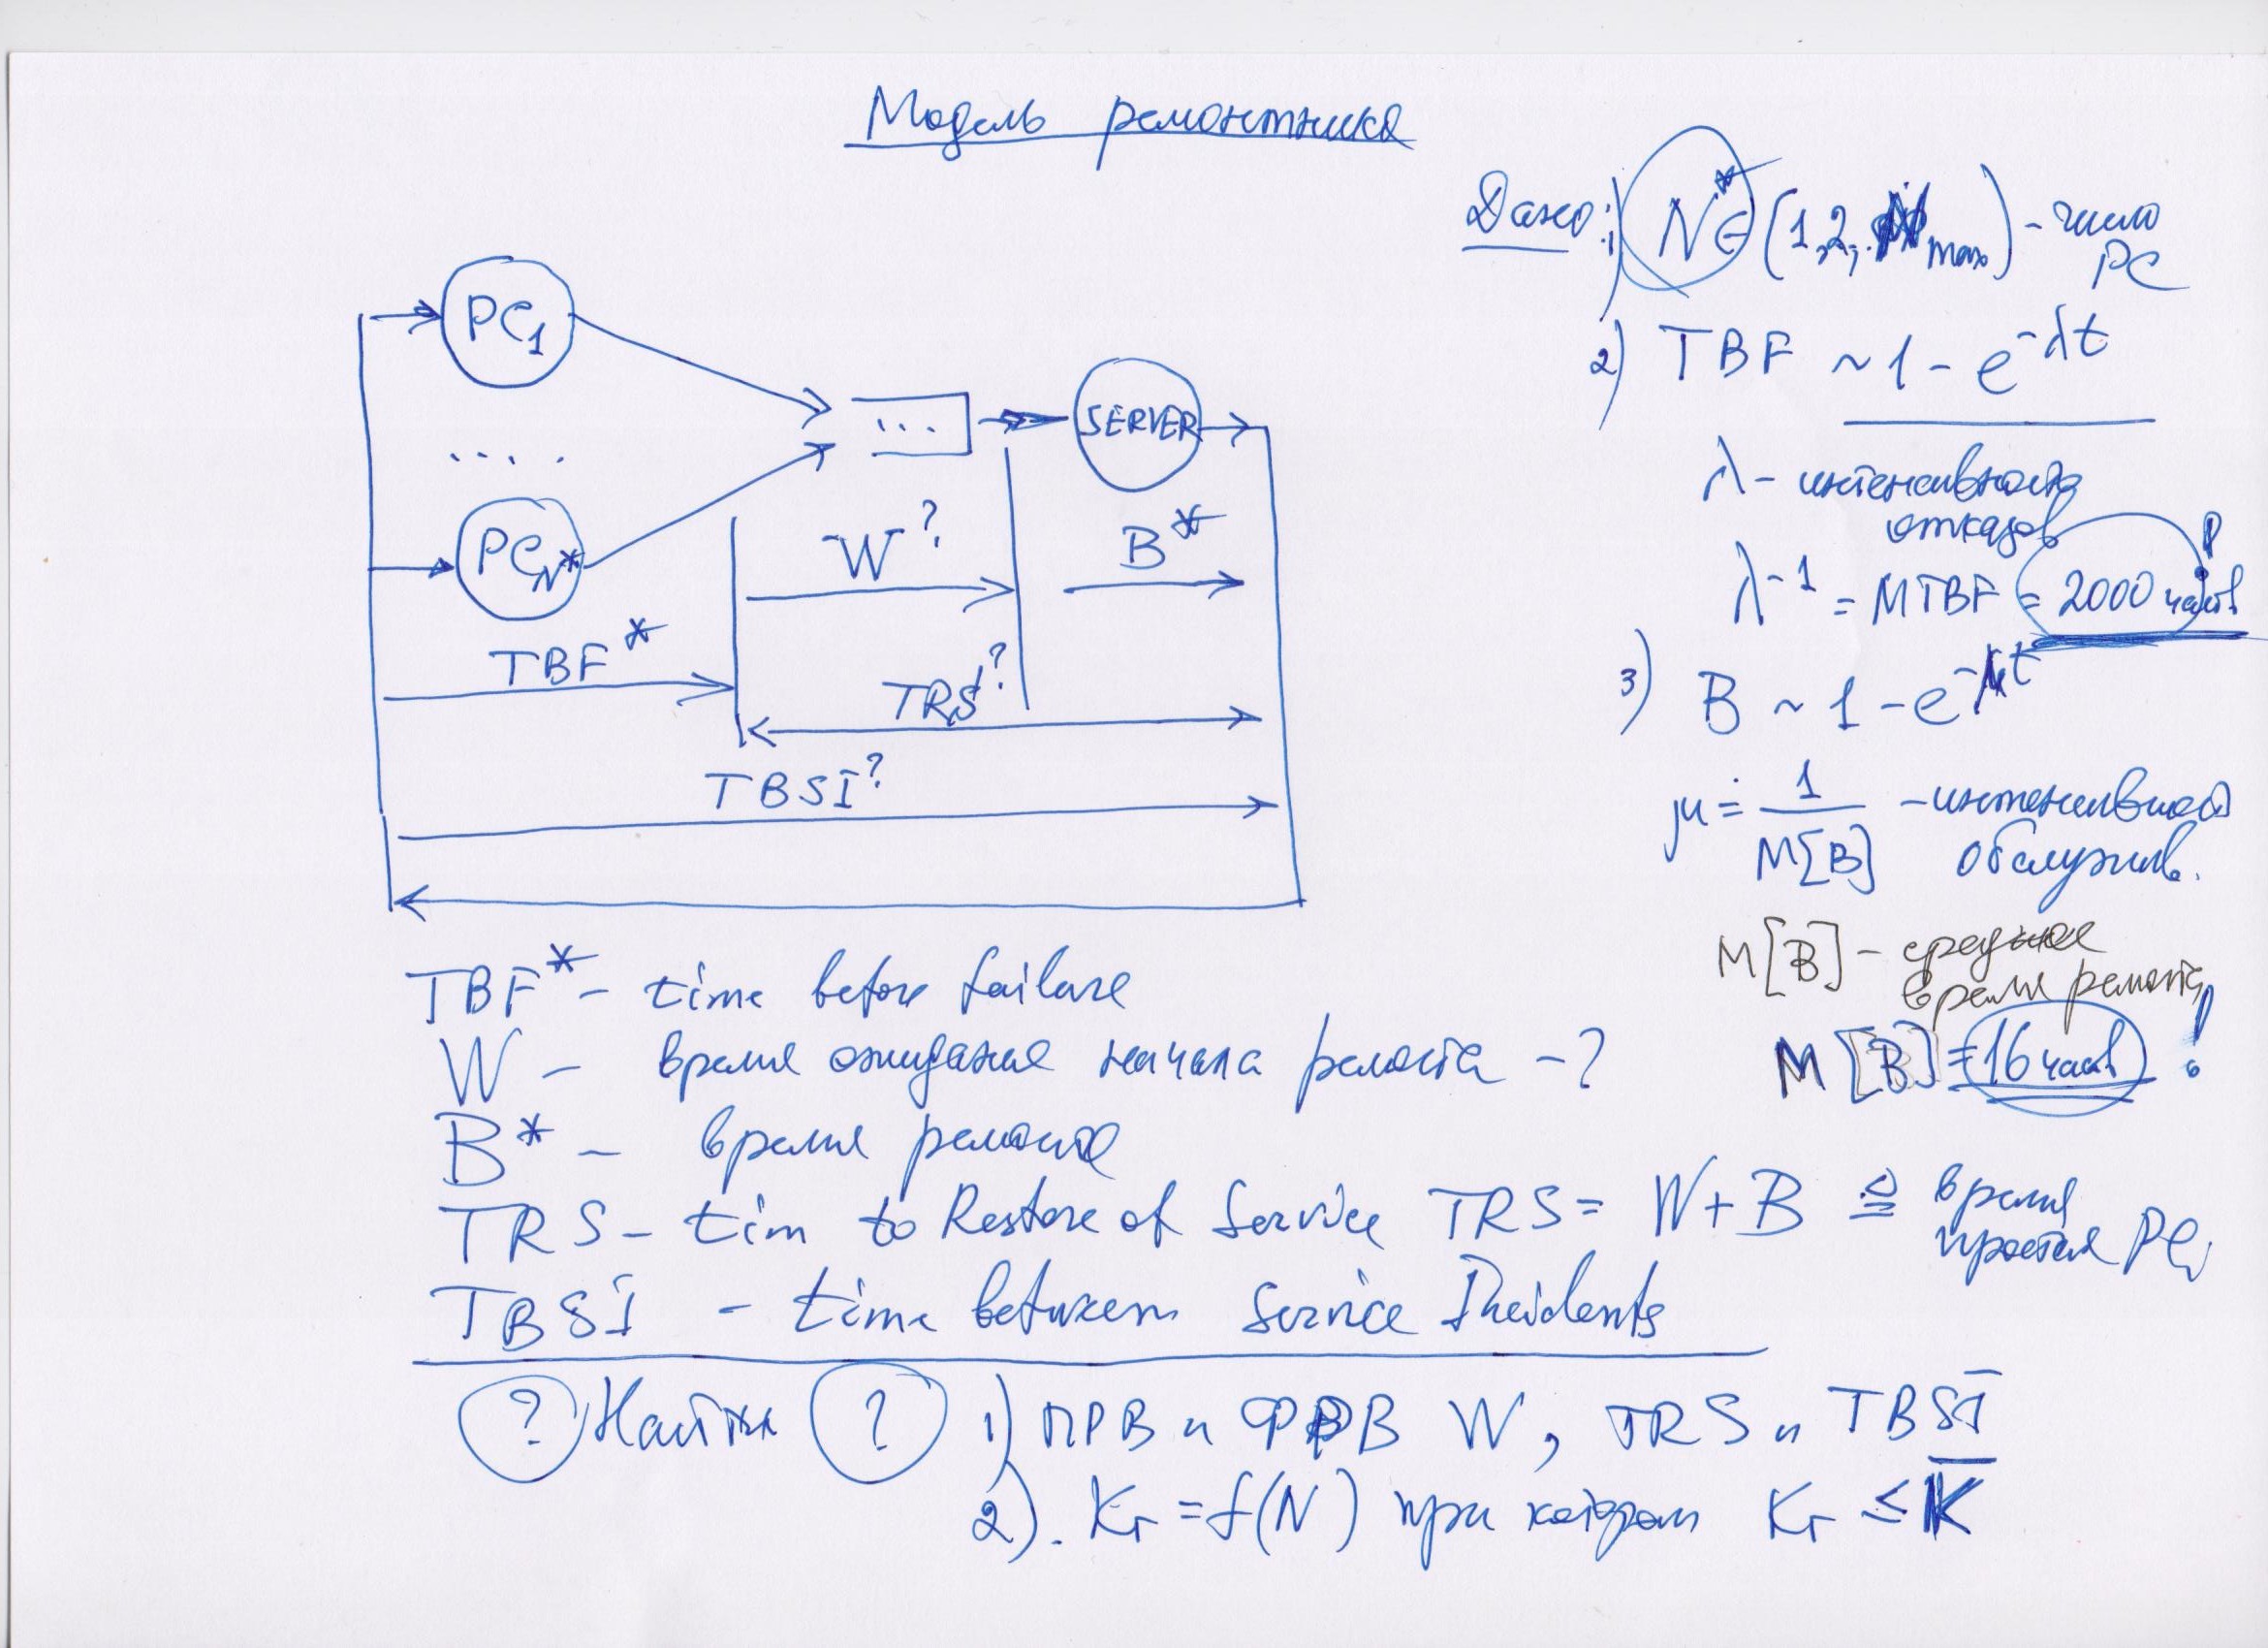 Модель ремонтника
Дано: 1) N* ∈ (1,2,..N max) - число PC
2) TBF ~ 1 - e^-λt
λ - интенсивность отказов
λ^-1 = MTBF = 2000 часов
3) B ~ 1 - e^-μt
μ = 1 / M[B] - интенсивност обслужив.
M[B] - среднее время ремонта
M[B] = 16 часов !
PC1
....
PCN*
...
SERVER
W?
B*
TBF*
TRS?
TBSI?
TBF* - time before failure
W - время ожидания начала ремонта - ?
B* - время ремонта
TRS - tim to Restore of Service TRS = W + B ≜ время простоя PC,
TBSI - time between Service Incidents
? Найти ? 1) ПРВ и ФРВ W, TRS и TBSI
2). Kг = f(N) при котором Kг ≤ K